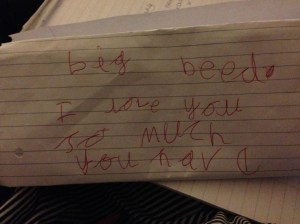 big beed.
I love you
so much
you hav a